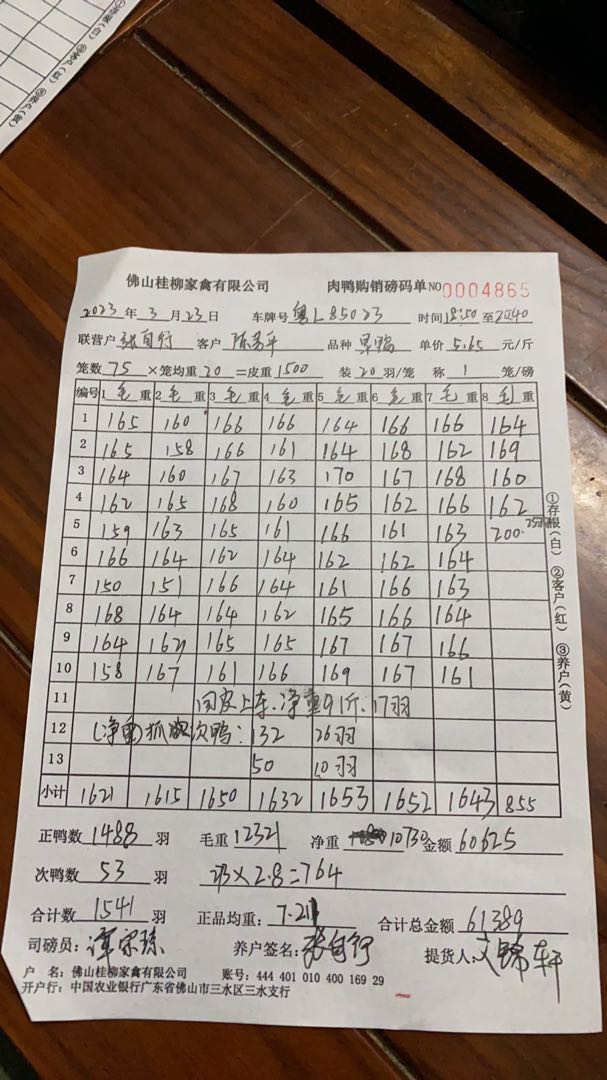 佛山桂柳家禽有限公司 肉鸭购销磅码单 NO 0004865
2023 年 3 月 23 日 车牌号 粤L85023 时间 18:50 至 20:40
联营户 张自行 客户 品种 单价 5.65 元/斤
笼数 75 ×笼均重 20 =皮重 1500 装 20 羽/笼 称 1 笼/磅
编号 1 毛 重 2 毛 重 3 毛 重 4 毛 重 5 毛 重 6 毛 重 7 毛 重 8 毛 重
1 165 160 166 166 164 166 166 164
2 165 158 166 161 164 168 162 169
3 164 160 167 163 170 167 168 160
4 162 165 168 160 165 162 166 162
5 159 163 165 161 166 161 163 200.
6 166 164 162 164 162 162 164
7 150 151 166 164 161 166 163
8 168 164 164 162 165 166 164
9 164 162 165 165 167 167 166
10 158 167 161 166 169 167 161
11 回皮上车.净重91斤.17羽
12 (净重)抓 次鸭: 132 26羽
13 50 10羽
小计 1621 1615 1650 1632 1653 1652 1643 855
正鸭数 1488 羽 毛重 12321 净重 10730 金额 60625
次鸭数 53 羽 ×2.8=764
合计数 1541 羽 正品均重: 7.21 合计总金额 61389
司磅员: 养户签名: 张自行 提货人:
户 名: 佛山桂柳家禽有限公司 账号: 444 401 010 400 169 29
开户行: 中国农业银行广东省佛山市三水区三水支行
①存根(白) ②客户(红) ③养户(黄)